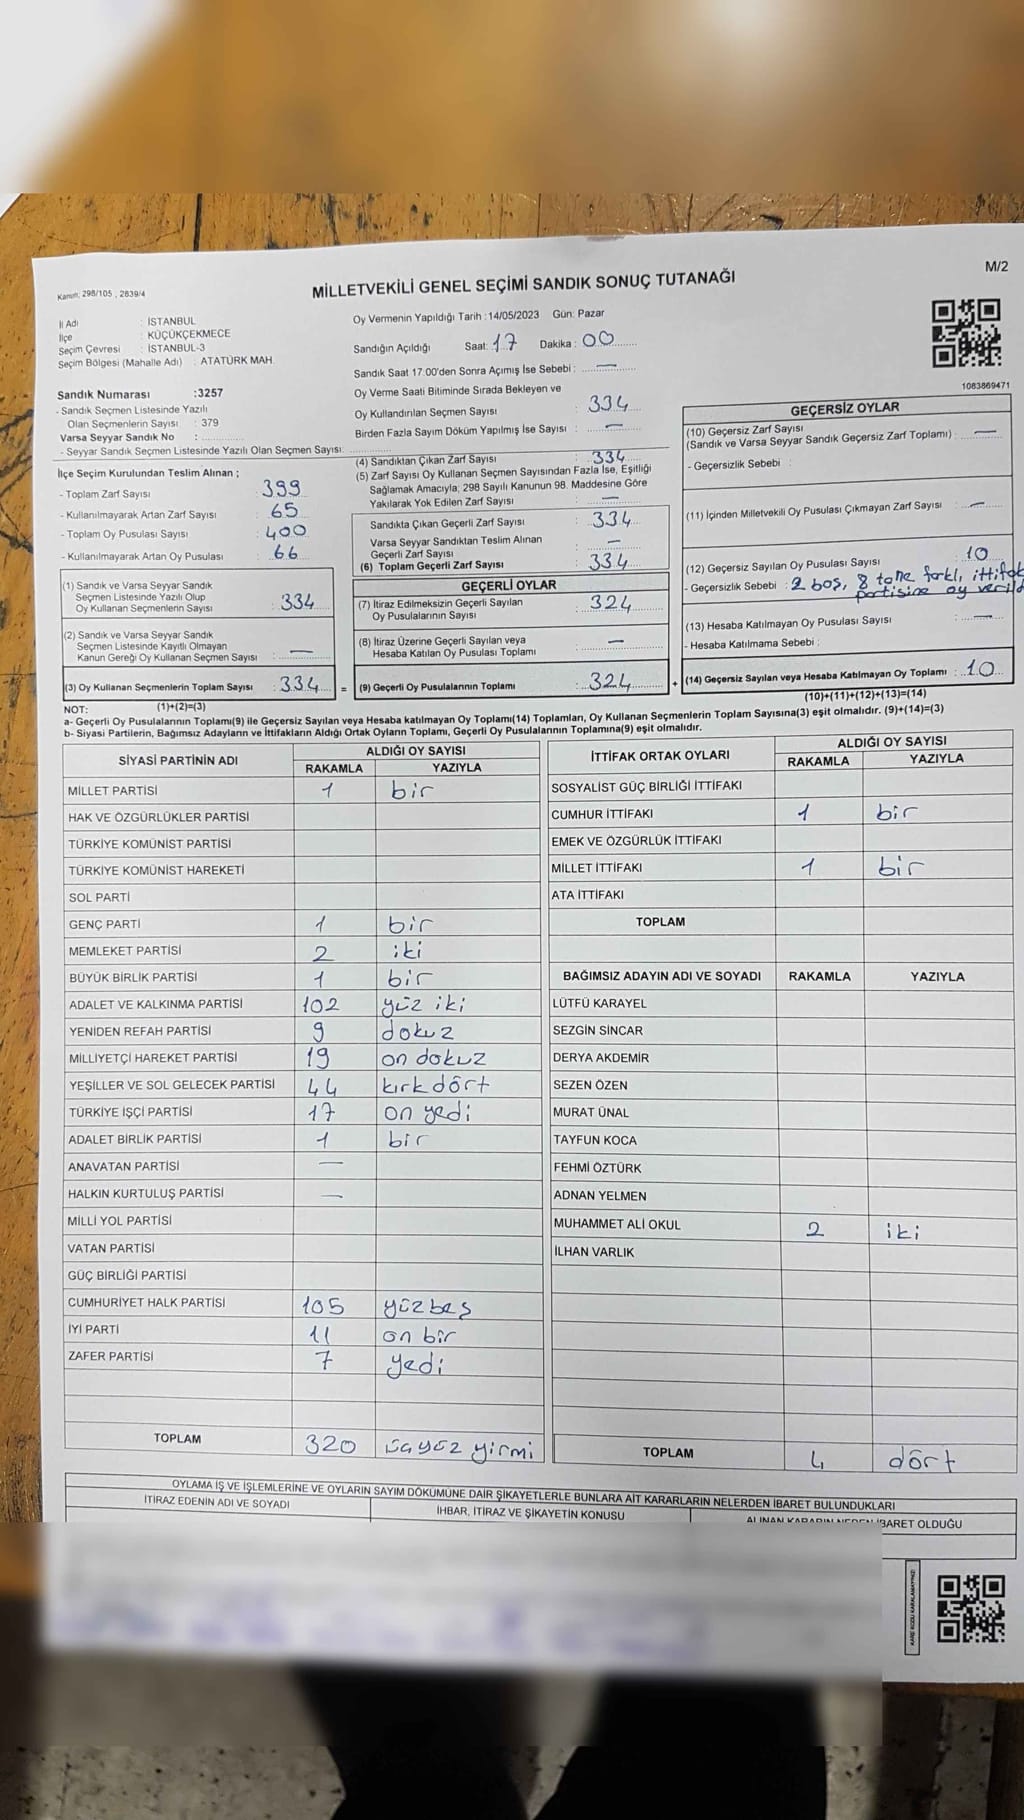 M/2
Kanun: 298/105 , 2839/4
MİLLETVEKİLİ GENEL SEÇİMİ SANDIK SONUÇ TUTANAĞI
İl Adı : İSTANBUL
İlçe : KÜÇÜKÇEKMECE
Seçim Çevresi : İSTANBUL-3
Seçim Bölgesi (Mahalle Adı) : ATATÜRK MAH.
Sandık Numarası :3257
- Sandık Seçmen Listesinde Yazılı
Olan Seçmenlerin Sayısı : 379
Varsa Seyyar Sandık No :
- Seyyar Sandık Seçmen Listesinde Yazılı Olan Seçmen Sayısı:
Oy Vermenin Yapıldığı Tarih :14/05/2023 Gün: Pazar
Sandığın Açıldığı Saat: 17 Dakika : 00
Sandık Saat 17.00'den Sonra Açımış İse Sebebi : —
Oy Verme Saati Bitiminde Sırada Bekleyen ve
Oy Kullandırılan Seçmen Sayısı : 334
Birden Fazla Sayım Döküm Yapılmış İse Sayısı : —
1083869471
İlçe Seçim Kurulundan Teslim Alınan ;
- Toplam Zarf Sayısı : 399
- Kullanılmayarak Artan Zarf Sayısı : 65
- Toplam Oy Pusulası Sayısı : 400
- Kullanılmayarak Artan Oy Pusulası : 66
(1) Sandık ve Varsa Seyyar Sandık
Seçmen Listesinde Yazılı Olup
Oy Kullanan Seçmenlerin Sayısı : 334
(2) Sandık ve Varsa Seyyar Sandık
Seçmen Listesinde Kayıtlı Olmayan
Kanun Gereği Oy Kullanan Seçmen Sayısı : —
(3) Oy Kullanan Seçmenlerin Toplam Sayısı : 334 =
(1)+(2)=(3)
(4) Sandıktan Çıkan Zarf Sayısı : 334
(5) Zarf Sayısı Oy Kullanan Seçmen Sayısından Fazla İse, Eşitliği
Sağlamak Amacıyla; 298 Sayılı Kanunun 98. Maddesine Göre
Yakılarak Yok Edilen Zarf Sayısı : —
Sandıkta Çıkan Geçerli Zarf Sayısı : 334
Varsa Seyyar Sandıktan Teslim Alınan
Geçerli Zarf Sayısı : —
(6) Toplam Geçerli Zarf Sayısı : 334
GEÇERLİ OYLAR
(7) İtiraz Edilmeksizin Geçerli Sayılan
Oy Pusulalarının Sayısı : 324
(8) İtiraz Üzerine Geçerli Sayılan veya
Hesaba Katılan Oy Pusulası Toplamı : —
(9) Geçerli Oy Pusulalarının Toplamı : 324 +
GEÇERSİZ OYLAR
(10) Geçersiz Zarf Sayısı
(Sandık ve Varsa Seyyar Sandık Geçersiz Zarf Toplamı) : —
- Geçersizlik Sebebi :
(11) İçinden Milletvekili Oy Pusulası Çıkmayan Zarf Sayısı : —
(12) Geçersiz Sayılan Oy Pusulası Sayısı : 10
- Geçersizlik Sebebi : 2 boş, 8 tane farklı, ittifak
partisine oy
(13) Hesaba Katılmayan Oy Pusulası Sayısı : —
- Hesaba Katılmama Sebebi :
(14) Geçersiz Sayılan veya Hesaba Katılmayan Oy Toplamı : 10
(10)+(11)+(12)+(13)=(14)
NOT:
a- Geçerli Oy Pusulalarının Toplamı(9) ile Geçersiz Sayılan veya Hesaba katılmayan Oy Toplamı(14) Toplamları, Oy Kullanan Seçmenlerin Toplam Sayısına(3) eşit olmalıdır. (9)+(14)=(3)
b- Siyasi Partilerin, Bağımsız Adayların ve İttifakların Aldığı Ortak Oyların Toplamı, Geçerli Oy Pusulalarının Toplamına(9) eşit olmalıdır.
SİYASİ PARTİNİN ADI ALDIĞI OY SAYISI
RAKAMLA YAZIYLA
MİLLET PARTİSİ 1 bir
HAK VE ÖZGÜRLÜKLER PARTİSİ
TÜRKİYE KOMÜNİST PARTİSİ
TÜRKİYE KOMÜNİST HAREKETİ
SOL PARTİ
GENÇ PARTİ 1 bir
MEMLEKET PARTİSİ 2 iki
BÜYÜK BİRLİK PARTİSİ 1 bir
ADALET VE KALKINMA PARTİSİ 102 yüz iki
YENİDEN REFAH PARTİSİ 9 dokuz
MİLLİYETÇİ HAREKET PARTİSİ 19 on dokuz
YEŞİLLER VE SOL GELECEK PARTİSİ 44 kırk dört
TÜRKİYE İŞÇİ PARTİSİ 17 on yedi
ADALET BİRLİK PARTİSİ 1 bir
ANAVATAN PARTİSİ —
HALKIN KURTULUŞ PARTİSİ —
MİLLİ YOL PARTİSİ
VATAN PARTİSİ
GÜÇ BİRLİĞİ PARTİSİ
CUMHURİYET HALK PARTİSİ 105 yüzbeş
İYİ PARTİ 11 on bir
ZAFER PARTİSİ 7 yedi
TOPLAM 320 üçyüz yirmi
İTTİFAK ORTAK OYLARI ALDIĞI OY SAYISI
RAKAMLA YAZIYLA
SOSYALİST GÜÇ BİRLİĞİ İTTİFAKI
CUMHUR İTTİFAKI 1 bir
EMEK VE ÖZGÜRLÜK İTTİFAKI
MİLLET İTTİFAKI 1 bir
ATA İTTİFAKI
TOPLAM
BAĞIMSIZ ADAYIN ADI VE SOYADI RAKAMLA YAZIYLA
LÜTFÜ KARAYEL
SEZGİN SİNCAR
DERYA AKDEMİR
SEZEN ÖZEN
MURAT ÜNAL
TAYFUN KOCA
FEHMİ ÖZTÜRK
ADNAN YELMEN
MUHAMMET ALİ OKUL 2 iki
İLHAN VARLIK
TOPLAM 4 dört
OYLAMA İŞ VE İŞLEMLERİNE VE OYLARIN SAYIM DÖKÜMÜNE DAİR ŞİKAYETLERLE BUNLARA AİT KARARLARIN NELERDEN İBARET BULUNDUKLARI
İTİRAZ EDENİN ADI VE SOYADI İHBAR, İTİRAZ VE ŞİKAYETİN KONUSU ALINAN KARARIN NEDEN İBARET OLDUĞU
KARE KODU KARALAMAYINIZ!